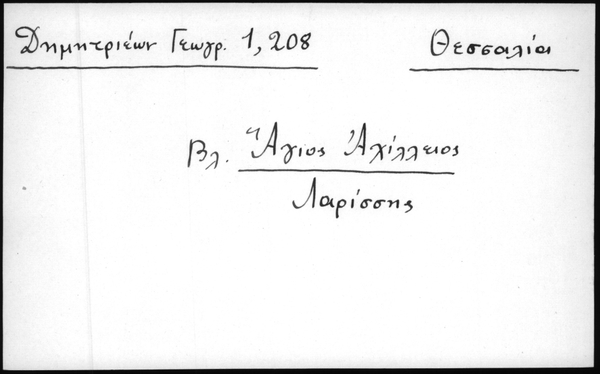 Δημητριέων Γεωγρ. 1,208
Θεσσαλία
Βλ. Ἅγιος Ἀχίλλειος
Λαρίσσης